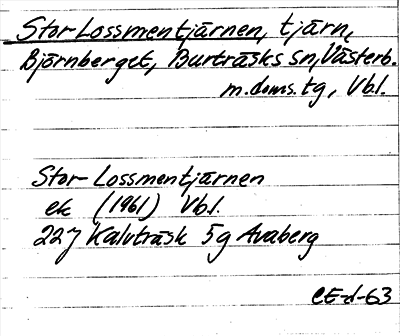 Stor-Lossmentjärnen, tjärn,
Björnberget, Burträsks sn, Västerb.
m.doms.tg, Vbl.
Stor-Lossmentjärnen
ek (1961) Vbl.
22J Kalvträsk 5g Avaberg
CE-d-63